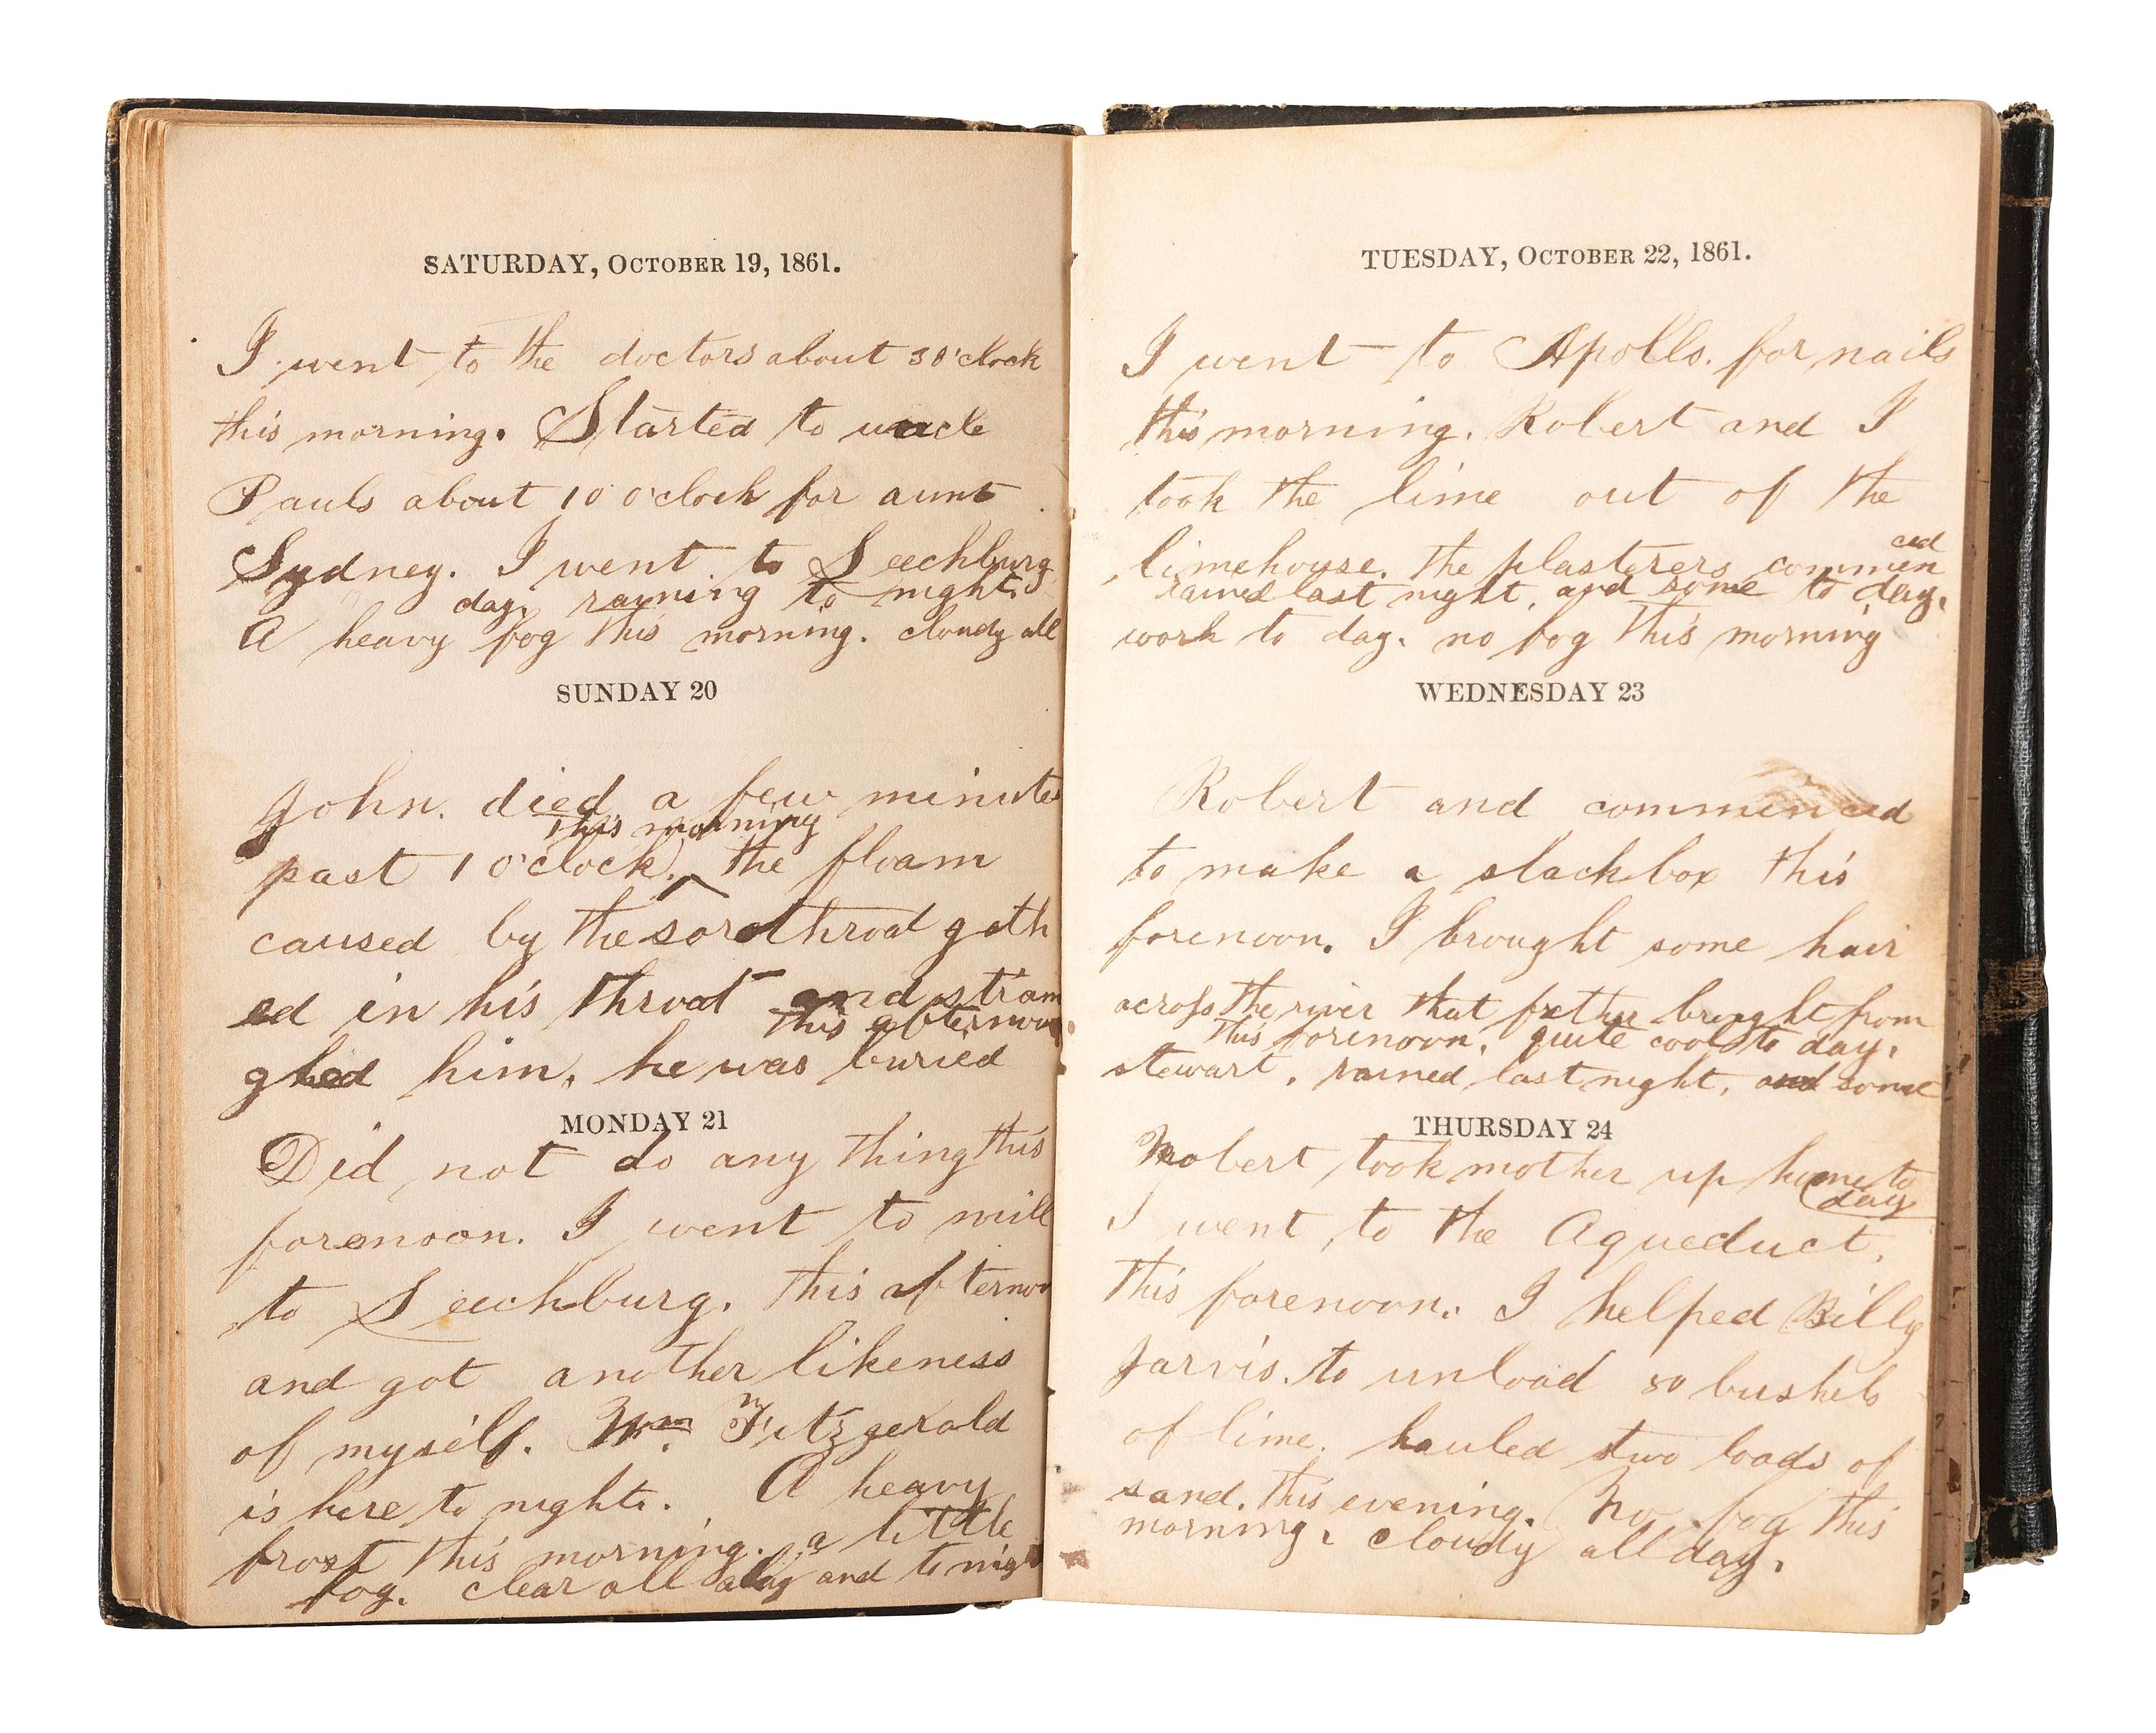 SATURDAY, OCTOBER 19, 1861.
I went to the doctors about 3 o'clock
this morning. Started to uncle
Pauls about 10 o'clock for aunt
Sydney. I went to Leechburg
day, rayning to night.
A heavy fog this morning. cloudy all
SUNDAY 20
John. died a few minutes
this morning
past 1 o'clock. the floam
caused by the sore throat gath
ed in his throat and stran
this afternoon
gled him, he was buried
MONDAY 21
Did not do any thing this
forenoon. I went to mill
to Leechburg. this afternoon
and got another likeness
of myself. Wm. Fitzgerald
is here to night. A heavy
frost this morning. a little
fog. clear all day and to night
TUESDAY, OCTOBER 22, 1861.
I went to Apollo. for nails
this morning. Robert and I
took the lime out of the
ced
limehouse. the plasterers commen
rained last night, and some to day.
work to day. no fog this morning
WEDNESDAY 23
Robert and commenced
to make a slack box this
forenoon. I brought some hair
across the river that father brought from
this forenoon. quite cool to day.
stewart. rained last night, and some
THURSDAY 24
Robert took mother up home to
day
I went to the Aqueduct.
this forenoon. I helped Billy
Jarvis. to unload 80 bushels
of lime. hauled two loads of
sand. this evening. No fog this
morning. cloudy all day.